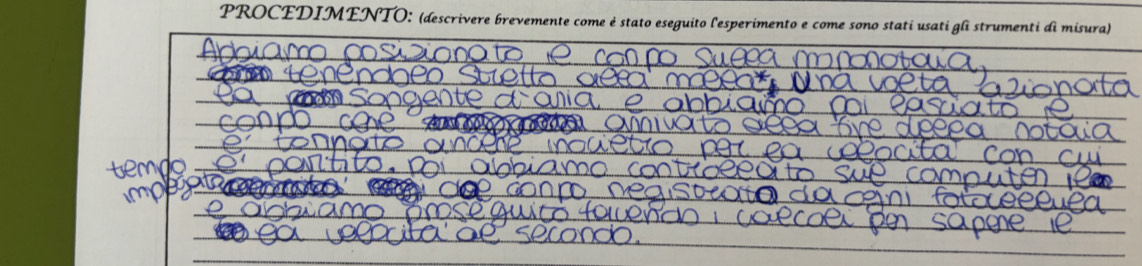 PROCEDIMENTO: (descrivere brevemente come è stato eseguito l'esperimento e come sono stati usati gli strumenti di misura)
Abbiamo posizionato il corpo sulla monorotaia,
tenendolo stretto alla molla*, Una volta azionata
la sorgente d'aria e abbiamo poi lasciato il
corpo che arrivato alla fine della rotaia
e' tornato anche indietro per la velocità con cui
e' partito. Poi abbiamo controllato sul computer il
tempo impiegato dal corpo registrato da ogni fotocellula
e abbiamo proseguito facendo i calcoli per sapere
la velocità al secondo.